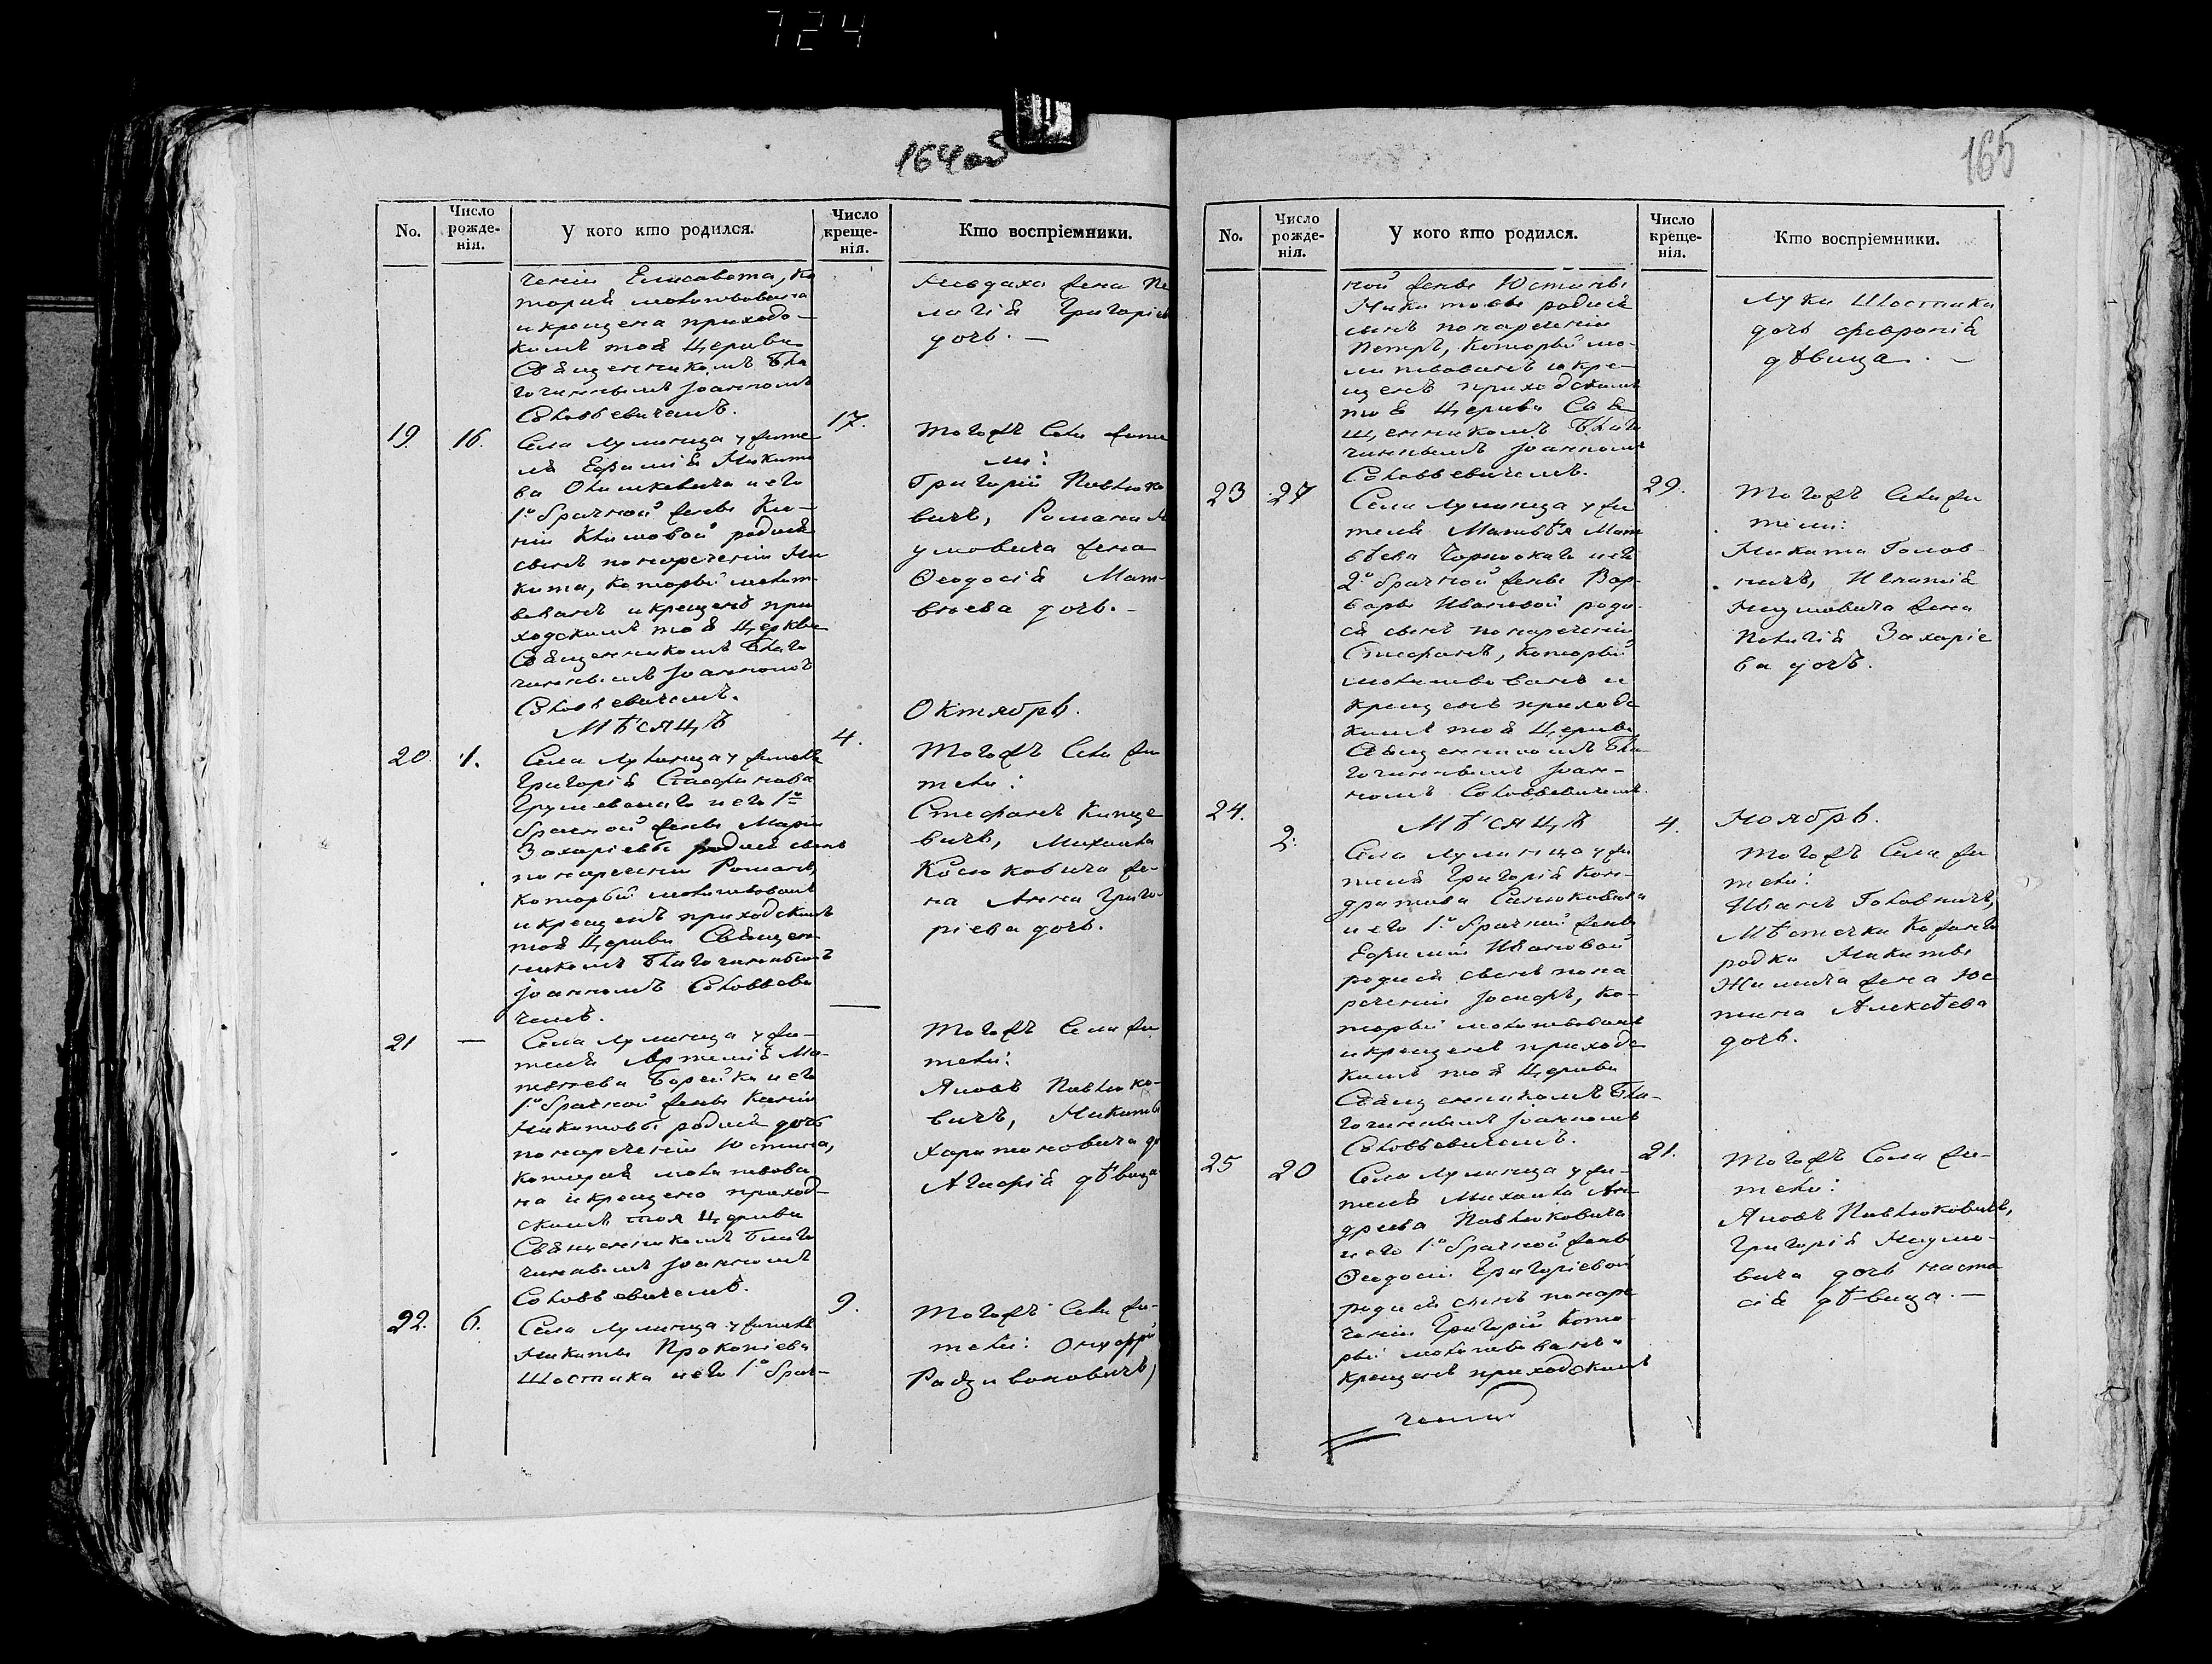 724
164об
165
No.
Число рожде-нія.
У кого кто родился.
Число креще-нія.
Кто воспріемники.
ченіи Елисавета, ко
торая молитвована
и крещена приход-
кимъ тоя Церкви
Священникомъ Бла
гочиннымъ Іоанномъ
Соловьевичемъ.
жена Пе
лагія Григоріев
дочь. —
19. 16.
Села Лулинца у жите
ля Ефимія Микити
ва и его
1о брачной жены Кси-
ніи Климовой родился
сынъ по нареченіи Ми
кита, который молит-
вованъ и крещенъ при
ходскимъ тоя Церкви
Священникомъ Благо
чиннымъ Іоанномъ
Соловьевичемъ.
17.
Тогожъ Села жите
ли:
Григорій Павлюко
вичъ, Романа Н
умовича жена
Ѳеодосія Мат-
вѣева дочь. -
Мѣсяцъ
Октябрь.
20. 1.
Села Лулинца у жителя
Григорія Стефанова
Грушевскаго и его 1о
брачной жены Маріи
Захаріевы родился сынъ
по нареченіи Романъ,
который молитвованъ
и крещенъ приходскимъ
тоя Церкви Священ
никомъ Благочиннымъ
Іоанномъ Соловьеви
чемъ.
4.
Тогожъ Села жи
тели:
Стефанъ
вичъ, Михаила
Косюковича же-
на Анна Григо-
ріева дочь.
21 —
Села Лулинца у жи-
теля Артемія Ма-
твѣева Борейка и его
1о брачной жены Ксеніи
Микитовы родилась дочь
по нареченіи Юстина,
которая молитвова
на и крещена приход-
скимъ тоя Церкви
Священникомъ Благо
чиннымъ Іоанномъ
Соловьевичемъ.
—
Тогожъ Села жи
тели:
Яковъ Павлюко-
вичъ, Микиты
Харитоновича до
Агафія дѣвица
22. 6.
Села Лулинца у жителя
Микиты Прокопіева
Шостака и его 1о брач-
9.
Тогожъ Села жи-
тели: Онуфрій
Радзивоновичъ,
No.
Число рожде-нія.
У кого кто родился.
Число креще-нія.
Кто воспріемники.
ной жены Юстины
Микитовы родился
сынъ по нареченіи
Петръ, который мо-
литвованъ и кре-
щенъ приходскимъ
тоя Церкви Свя
щенникомъ Благо
чиннымъ Іоанномъ
Соловьевичемъ.
Луки Шостака
дочь Февронія
дѣвица. —
23 27
Села Лулинца у жи
теля Матвѣя Мат
вѣева и его
2о брачной жены Вар-
вары Ивановой роди-
ся сынъ по нареченіи
Стефанъ, который
молитвованъ и
крещенъ приходс
кимъ тоя Церкви
Священникомъ Бла
гочиннымъ Іоан-
номъ Соловьевичемъ.
29.
Тогожъ Села жи
тели:
Микита Голов-
ничъ, Игнатія
Наумовича жена
Пелагія Захаріе
ва дочь.
Мѣсяцъ
Ноябрь.
24. 2.
Села Лулинца у жи
теля Григорія Кон-
дратова Санюковича
и его 1о брачной жены
Ефиміи Ивановой
родился сынъ по на
реченіи Іосифъ, ко-
торый молитвованъ
и крещенъ приходс
кимъ тоя Церкви
Священникомъ Бла-
гочиннымъ Іоанномъ
Соловьевичемъ.
4.
Тогожъ Села жи
тели:
Иванъ Головничъ,
Мѣстечка Кожанго
родка Микиты
Жилича жена Юс
тина Алексѣева
дочь.
25 20
Села Лулинца у жи-
теля Михаила Ан-
дреева Павлюковича
и его 1о брачной жены
Ѳеодосіи Григоріевой
родился сынъ по наре
ченіи Григорій кото-
рый молитвованъ и
крещенъ приходскимъ
21.
Тогожъ Села жи-
тели:
Яковъ Павлюковичъ,
Григорія Наумо-
вича дочь Наста
сія дѣвица. —